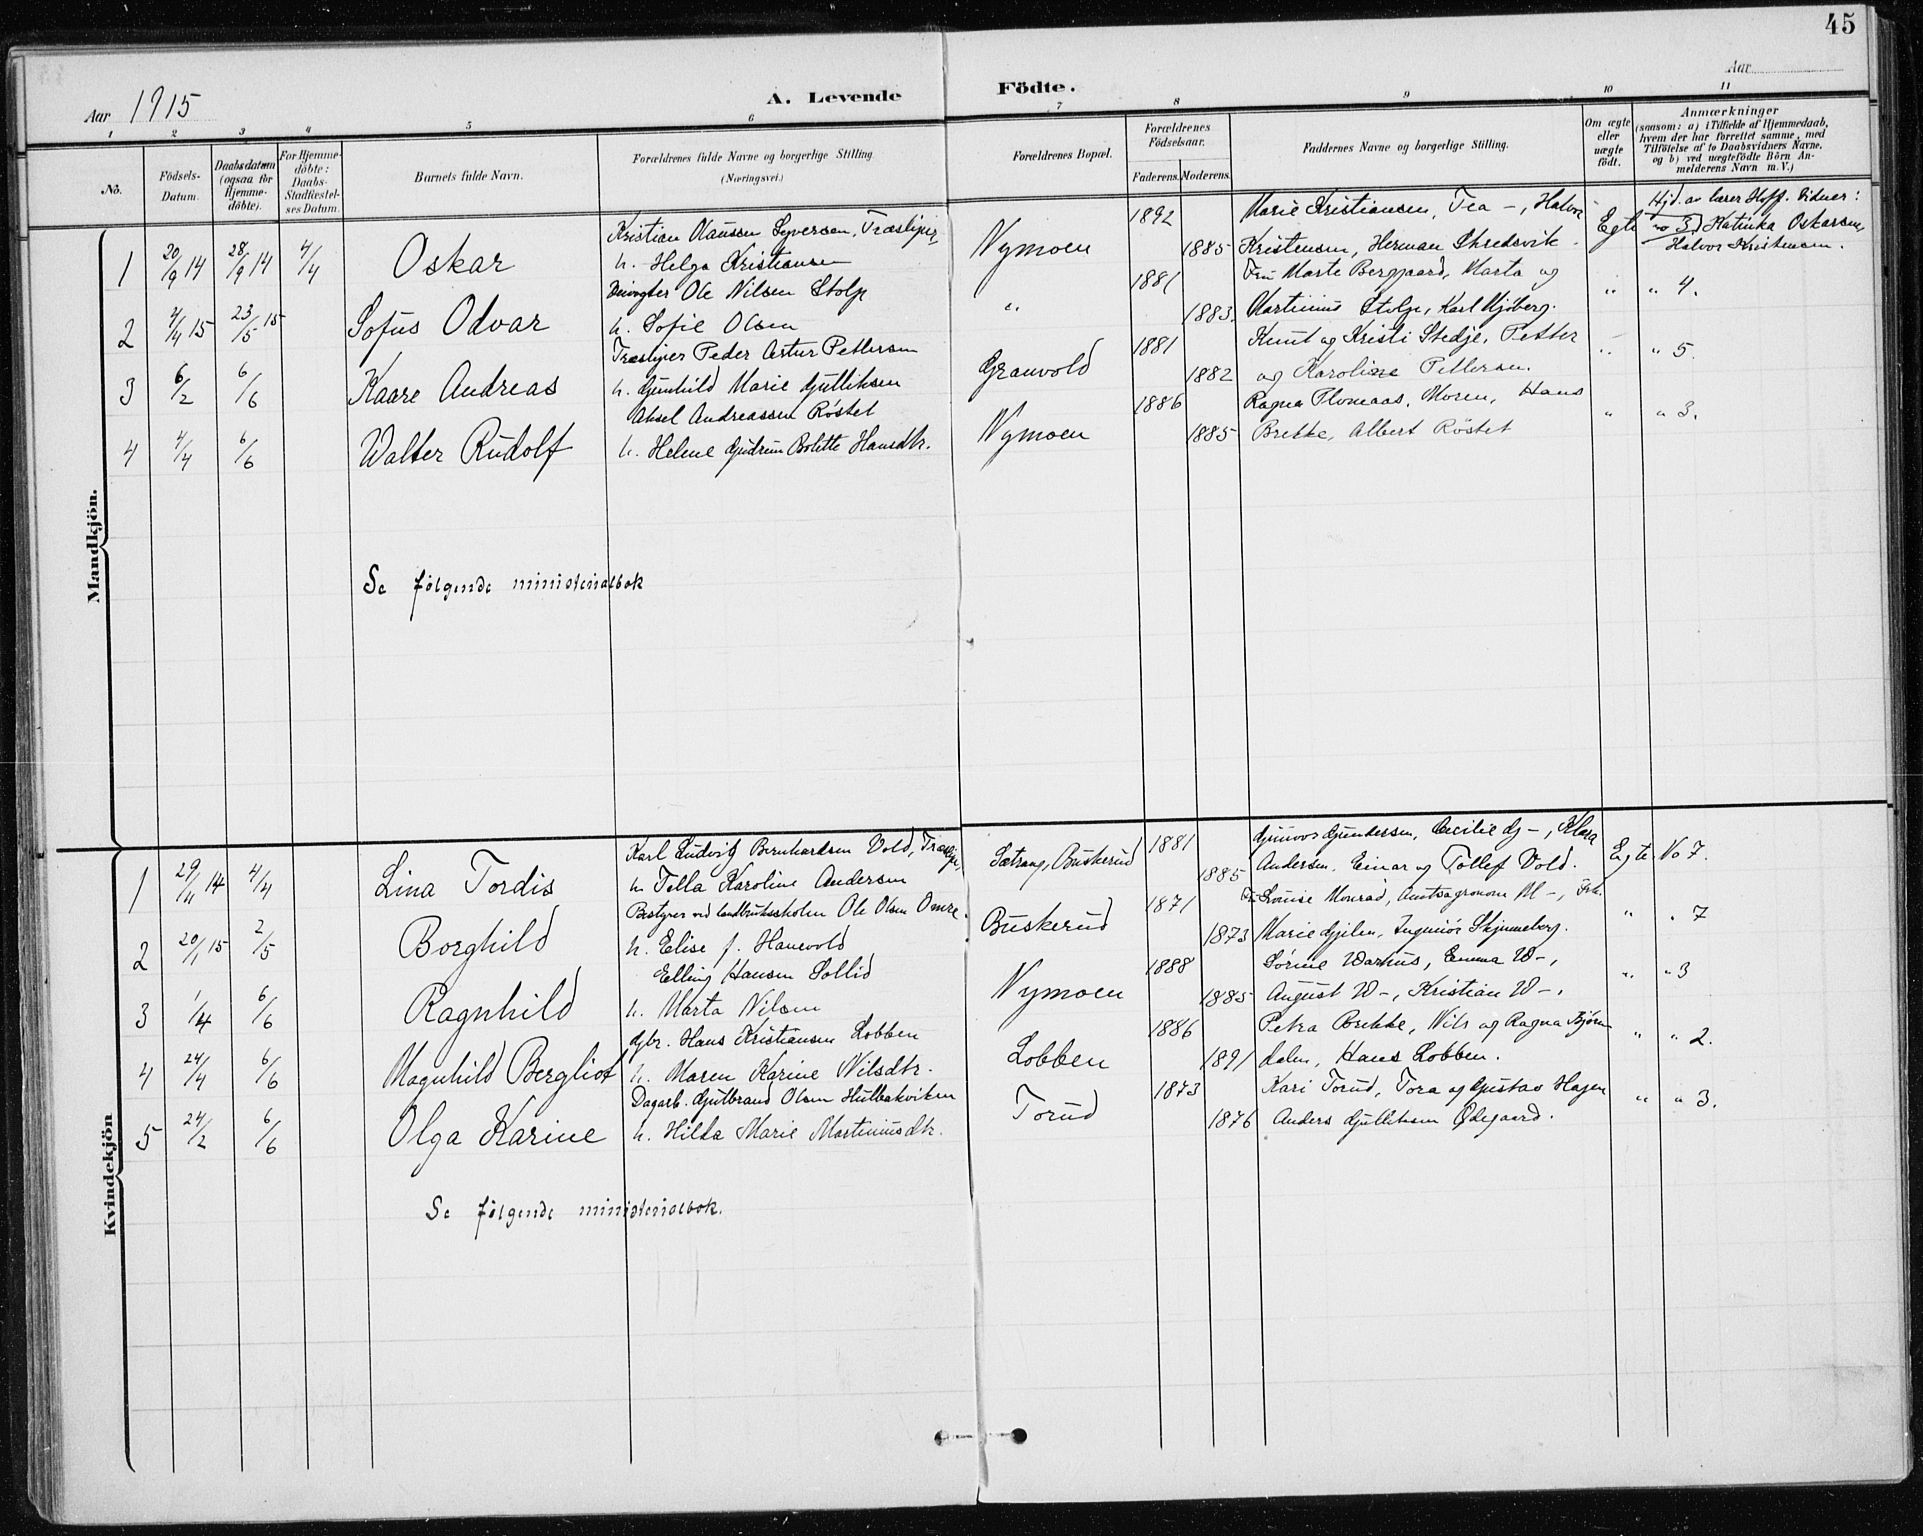 45
Aar 1915
A. Levende Födte.
Aar
1 2 3 4 5 6 7 8 9 10 11
No.
Födsels-Datum.
Daabsdatum (ogsaa for Hjemme-döbte).
For Hjemme-döbte: Daabs-Stadfæstel-ses Datum.
Barnets fulde Navn.
Forældrenes fulde Navne og borgerlige Stilling (Næringsvei.)
Forældrenes Bopæl.
Forældrenes Födselsaar.
Faderens. Moderens.
Faddernes Navne og borgerlige Stilling.
Om ægte eller uægte födt.
Anmærkninger
(saasom: a) i Tilfælde af Hjemmedaab,
hvem der har forrettet samme, med
Tilföielse af to Daabsvidners Navne,
og b) ved uægtefödte Börn An-
melderens Navn m. V.)
Mandkjön.
Kristian Olaussen Syversen, Træsliper, 1892 Marie Kristiansen, Tea -, Halvor Hjd. av lærer Hoff. Vidner:
1 20/9 14 28/9 14 4/4 Oskar h. Helga Kristiansen Nymoen 1885 Kristensen, Herman Skredsvik. Egte no 3) Katinka Oskarsen, Halvor Kristensen.
Ole Nilsen Stolp 1881 Fru Marte Berggaard, Marta og
2 4/4 15 23/5 15 Sofus Odvar h. Sofie Olsen " 1883. Martinius Stolp, Karl Mjøberg. " " 4.
Træsliper Peder Artur Pettersen 1881 Knut og Kristi Stedje, Petter
3 6/2 6/6 Kaare Andreas h. Gunhild Marie Gulliksen Granvold 1882 og Karoline Pettersen. " " 5.
Aksel Andreassen Røstet 1886 Ragna Plomaas, Moren, Hans
4 4/4 6/6 Walter Rudolf h. Helene Gudrun Bolette Hansdtr. Nymoen 1885 Brekke, Albert Røstet " " 3.
Se følgende ministerialbok
Kvindekjön
Karl Ludvig Bernhardsen Vold, Træsliper, 1881 Gunvor Gundersen, Cecilie G -, Klara
1 29/11 14 4/4 Lina Tordis h. Tella Karoline Andersen Sætrang, Buskerud 1885 Andersen, Einar og Tollef Vold. Egte No 7.
Bestyrer ved landbruksskolen Ole Olsen Omre. 1871 Fru Louise Monrad, Amtsagronom M -, Frk.
2 20/1 15 2/5 Borghild h. Elise f. Hanevold Buskerud 1873 Marie Gjilen, Ingeniør Skjinneberg. " " 7
Elling Hansen Sollid 1888 Sørine Warhus, Emma W -,
3 1/4 6/6 Ragnhild h. Marta Nilsen Nymoen 1885 August W -, Kristian W -. " " 3
Gbr. Hans Kristiansen Lobben 1886 Petra Brekke, Nils og Ragna Bjørn-
4 24/4 6/6 Magnhild Bergliot h. Maren Karine Nilsdtr. Lobben 1891 dalen, Hans Lobben. " " 2.
Dagarb. Gulbrand Olsen Hulbakviken 1873 Kari Torud, Tora og Gustav Hagen
5 24/2 6/6 Olga Karine h. Hilda Marie Martiniusdtr. Torud 1876 Anders Gulliksen Ødegaard. " " 3.
Se følgende ministerialbok.